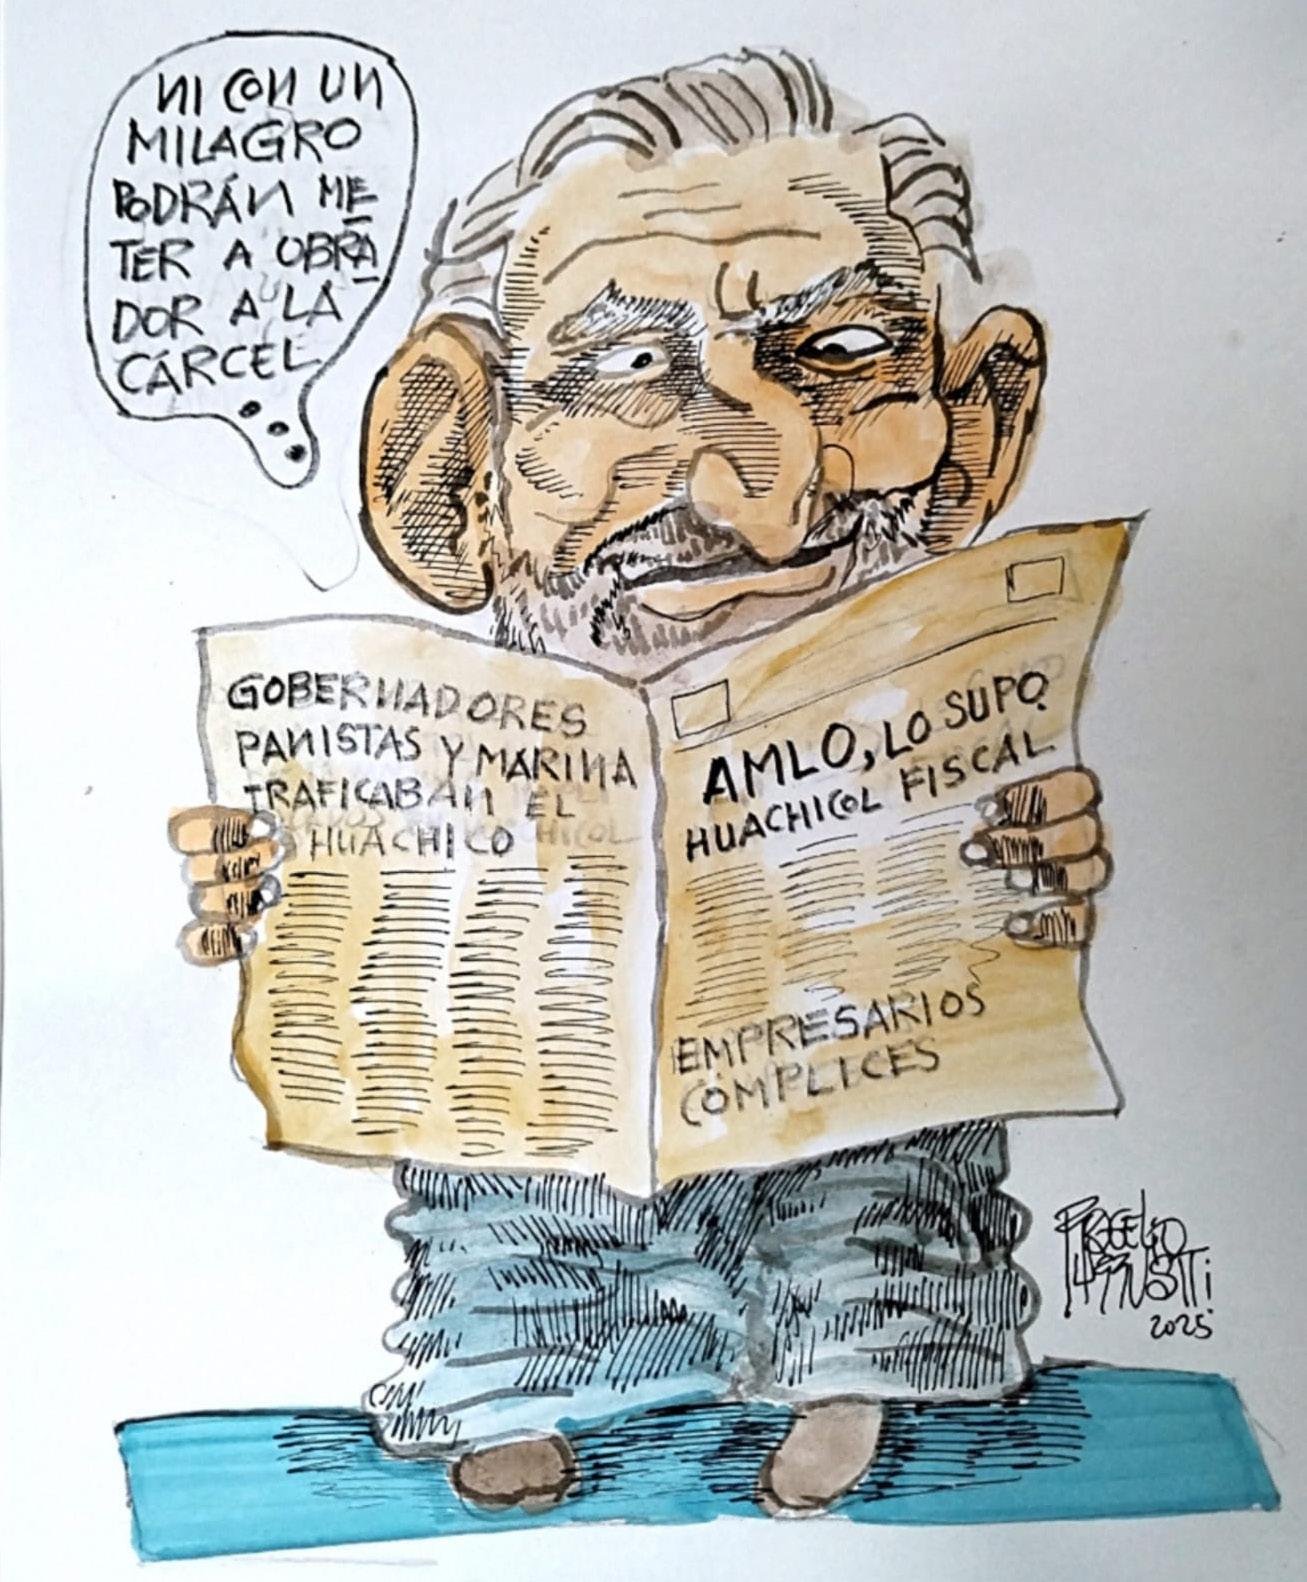 NI CON UN
MILAGRO
PODRÁN ME
TER A OBRA
DOR A LA
CÁRCEL
GOBERNADORES
PANISTAS Y MARINA
TRAFICABAN EL
HUACHICO
AMLO, LO SUPO
HUACHICOL FISCAL
EMPRESARIOS
COMPLICES
ROGELIO
2025